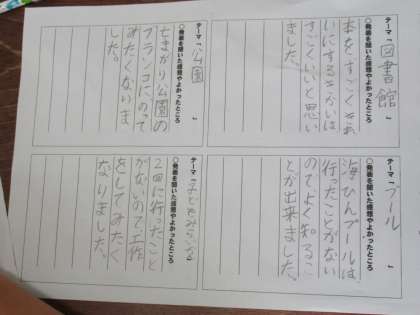 テーマ「図書館」
○発表を聞いた感想やよかったところ
本をすごくきれ
いにするきかいは
すごくいいと思い
ました。
テーマ「プール」
○発表を聞いた感想やよかったところ
海ひんプールは、
行ったことがない
のでよく知るこ
とが出来ました。
テーマ「公園」
○発表を聞いた感想やよかったところ
七まがり公園の
ブランコにのって
みたくなりま
した。
テーマ「子どもみらい
○発表を聞いた感想やよかったところ
2回に行ったこと
がないので、工作
をしてみたく
なりました。